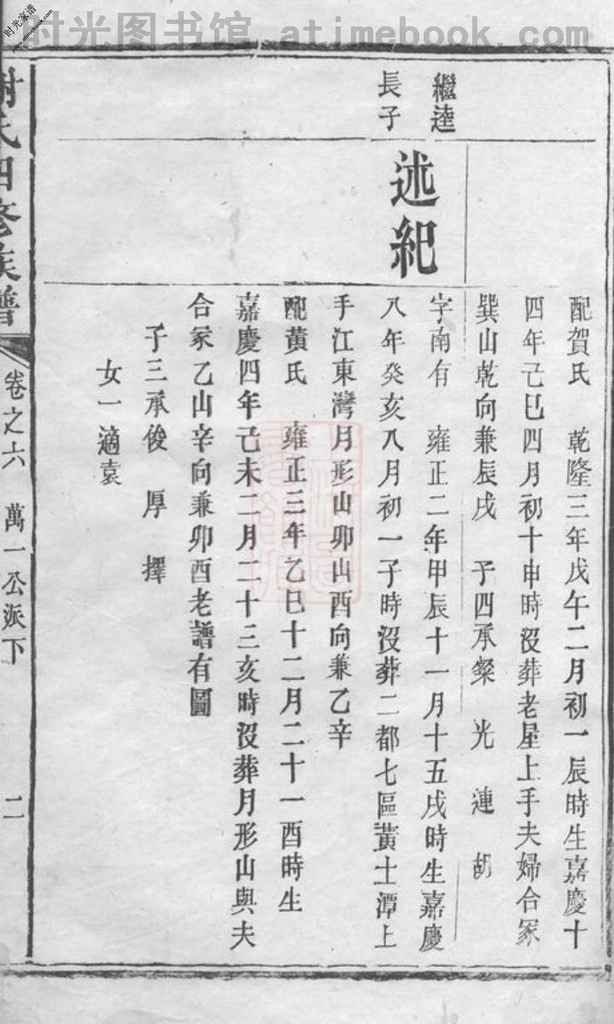 时光图书馆 . atimebook.com
时光家谱
繼逵
長子
述紀
配賀氏 乾隆三年戊午二月初一辰時生嘉慶十
四年己巳四月初十申時沒葬老屋上手夫婦合冢
巽山乾向兼辰戌 子四承粲 光 連 胡
字南有 雍正二年甲辰十一月十五戌時生嘉慶
八年癸亥八月初一子時沒葬二都七區黃土潭上
手江東灣月形山卯山酉向兼乙辛
配黃氏 雍正三年乙巳十二月二十一酉時生
嘉慶四年己未二月二十三亥時沒葬月形山與夫
合冢乙山辛向兼卯酉老譜有圖
子三承俊 厚 擇
女一適袁
謝氏四修族譜
卷之六 萬一公派下 二